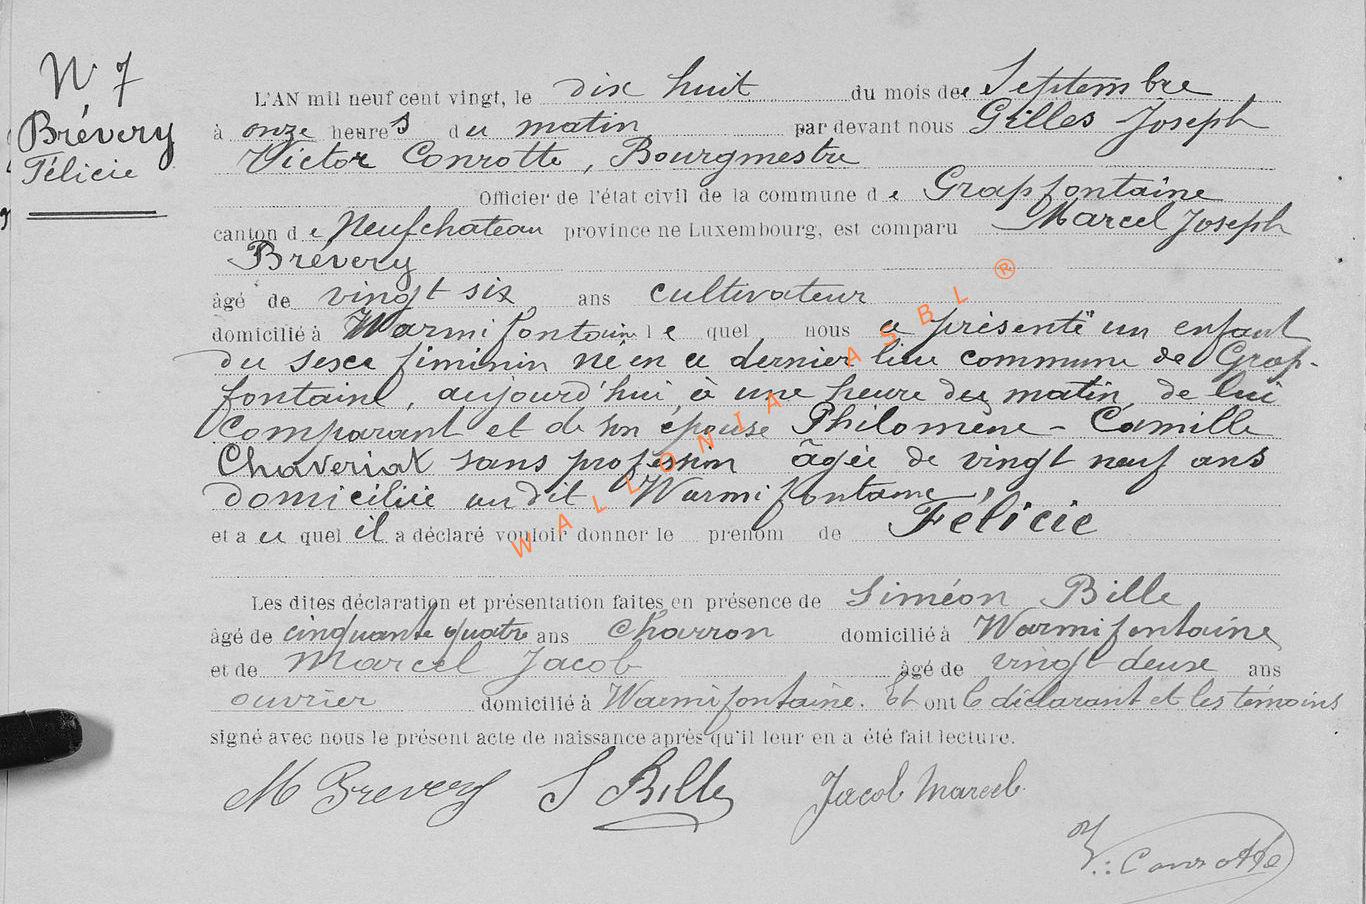 N° 7
Brévery
Félicie
L'AN mil neuf cent vingt, le dix huit du mois de Septembre
à onze heures du matin par devant nous Gilles Joseph
Victor Conrotte, Bourgmestre
Officier de l'état civil de la commune de Grapfontaine
canton de Neufchateau province ne Luxembourg, est comparu Marcel Joseph
Brévery
âgé de vingt six ans cultivateur
domicilié à Warmifontaine le quel nous a présenté un enfant
du sexe féminin né en ce dernier lieu commune de Grap-
fontaine, aujourd'hui, à une heure du matin, de lui
Comparant et de son épouse Philomène - Camille
Chaveriat sans profession âgée de vingt neuf ans
domiciliée au dit Warmifontaine,
et a u quel il a déclaré vouloir donner le prénom de Félicie
Les dites déclaration et présentation faites en présence de Siméon Bille
âgé de cinquante quatre ans Charron domicilié à Warmifontaine
et de Marcel Jacob âgé de vingt deux ans
ouvrier domicilié à Warmifontaine. Et ont le déclarant et les témoins
signé avec nous le présent acte de naissance après qu'il leur en a été fait lecture.
M Brevery S Bille Jacob Marcel
V. Conrotte
WALLONIA ASBL ®